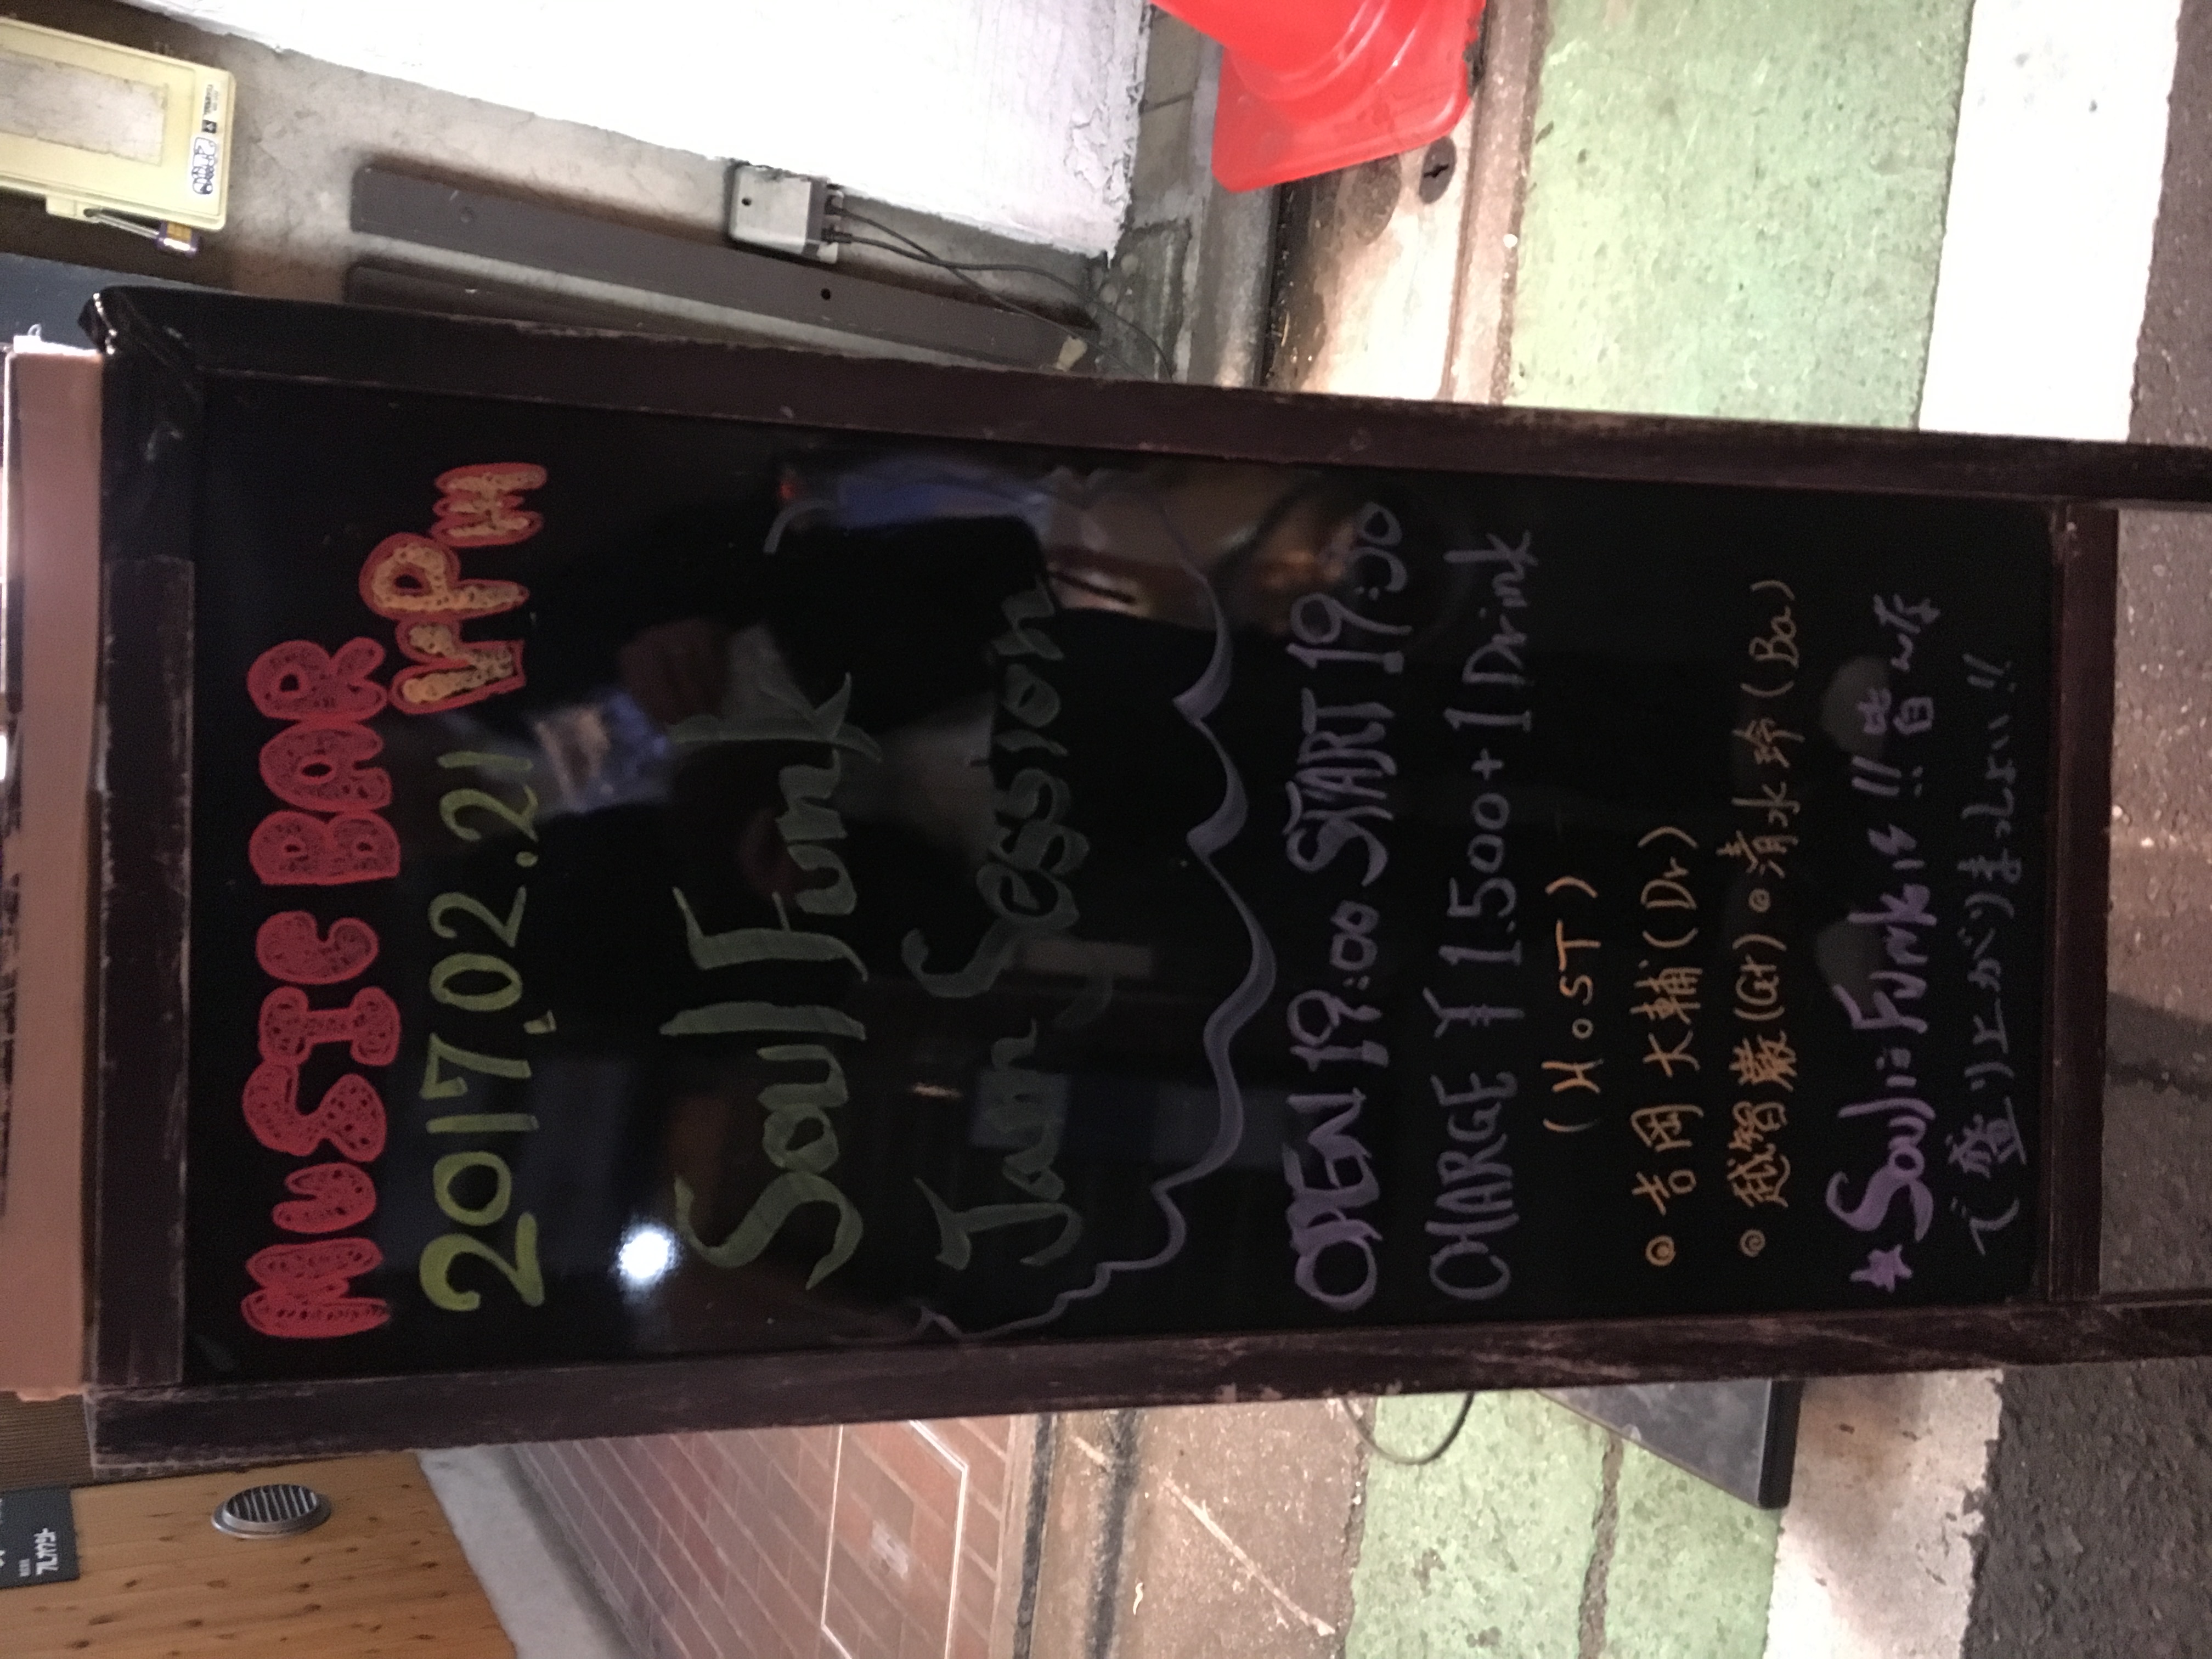 MUSIC BAR
2017.02.21
Soul Funk
Jam Session
OPEN 19:00 START 19:30
CHARGE ¥1.500+1 Drink
(HOST)
◎吉岡大輔(Dr)
◎越智巌(Gt) ◎清水玲(Ba)
★Soulに Funkに!! 皆な
で登り上がりまっしょい!!